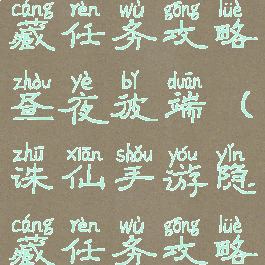 cáng rèn wù gōng lüè
藏任务攻略
zhòu yè bǐ duān
昼夜彼端（
zhū xiān shǒu yóu yǐn
诛仙手游隐
cáng rèn wù gōng lüè
藏任务攻略